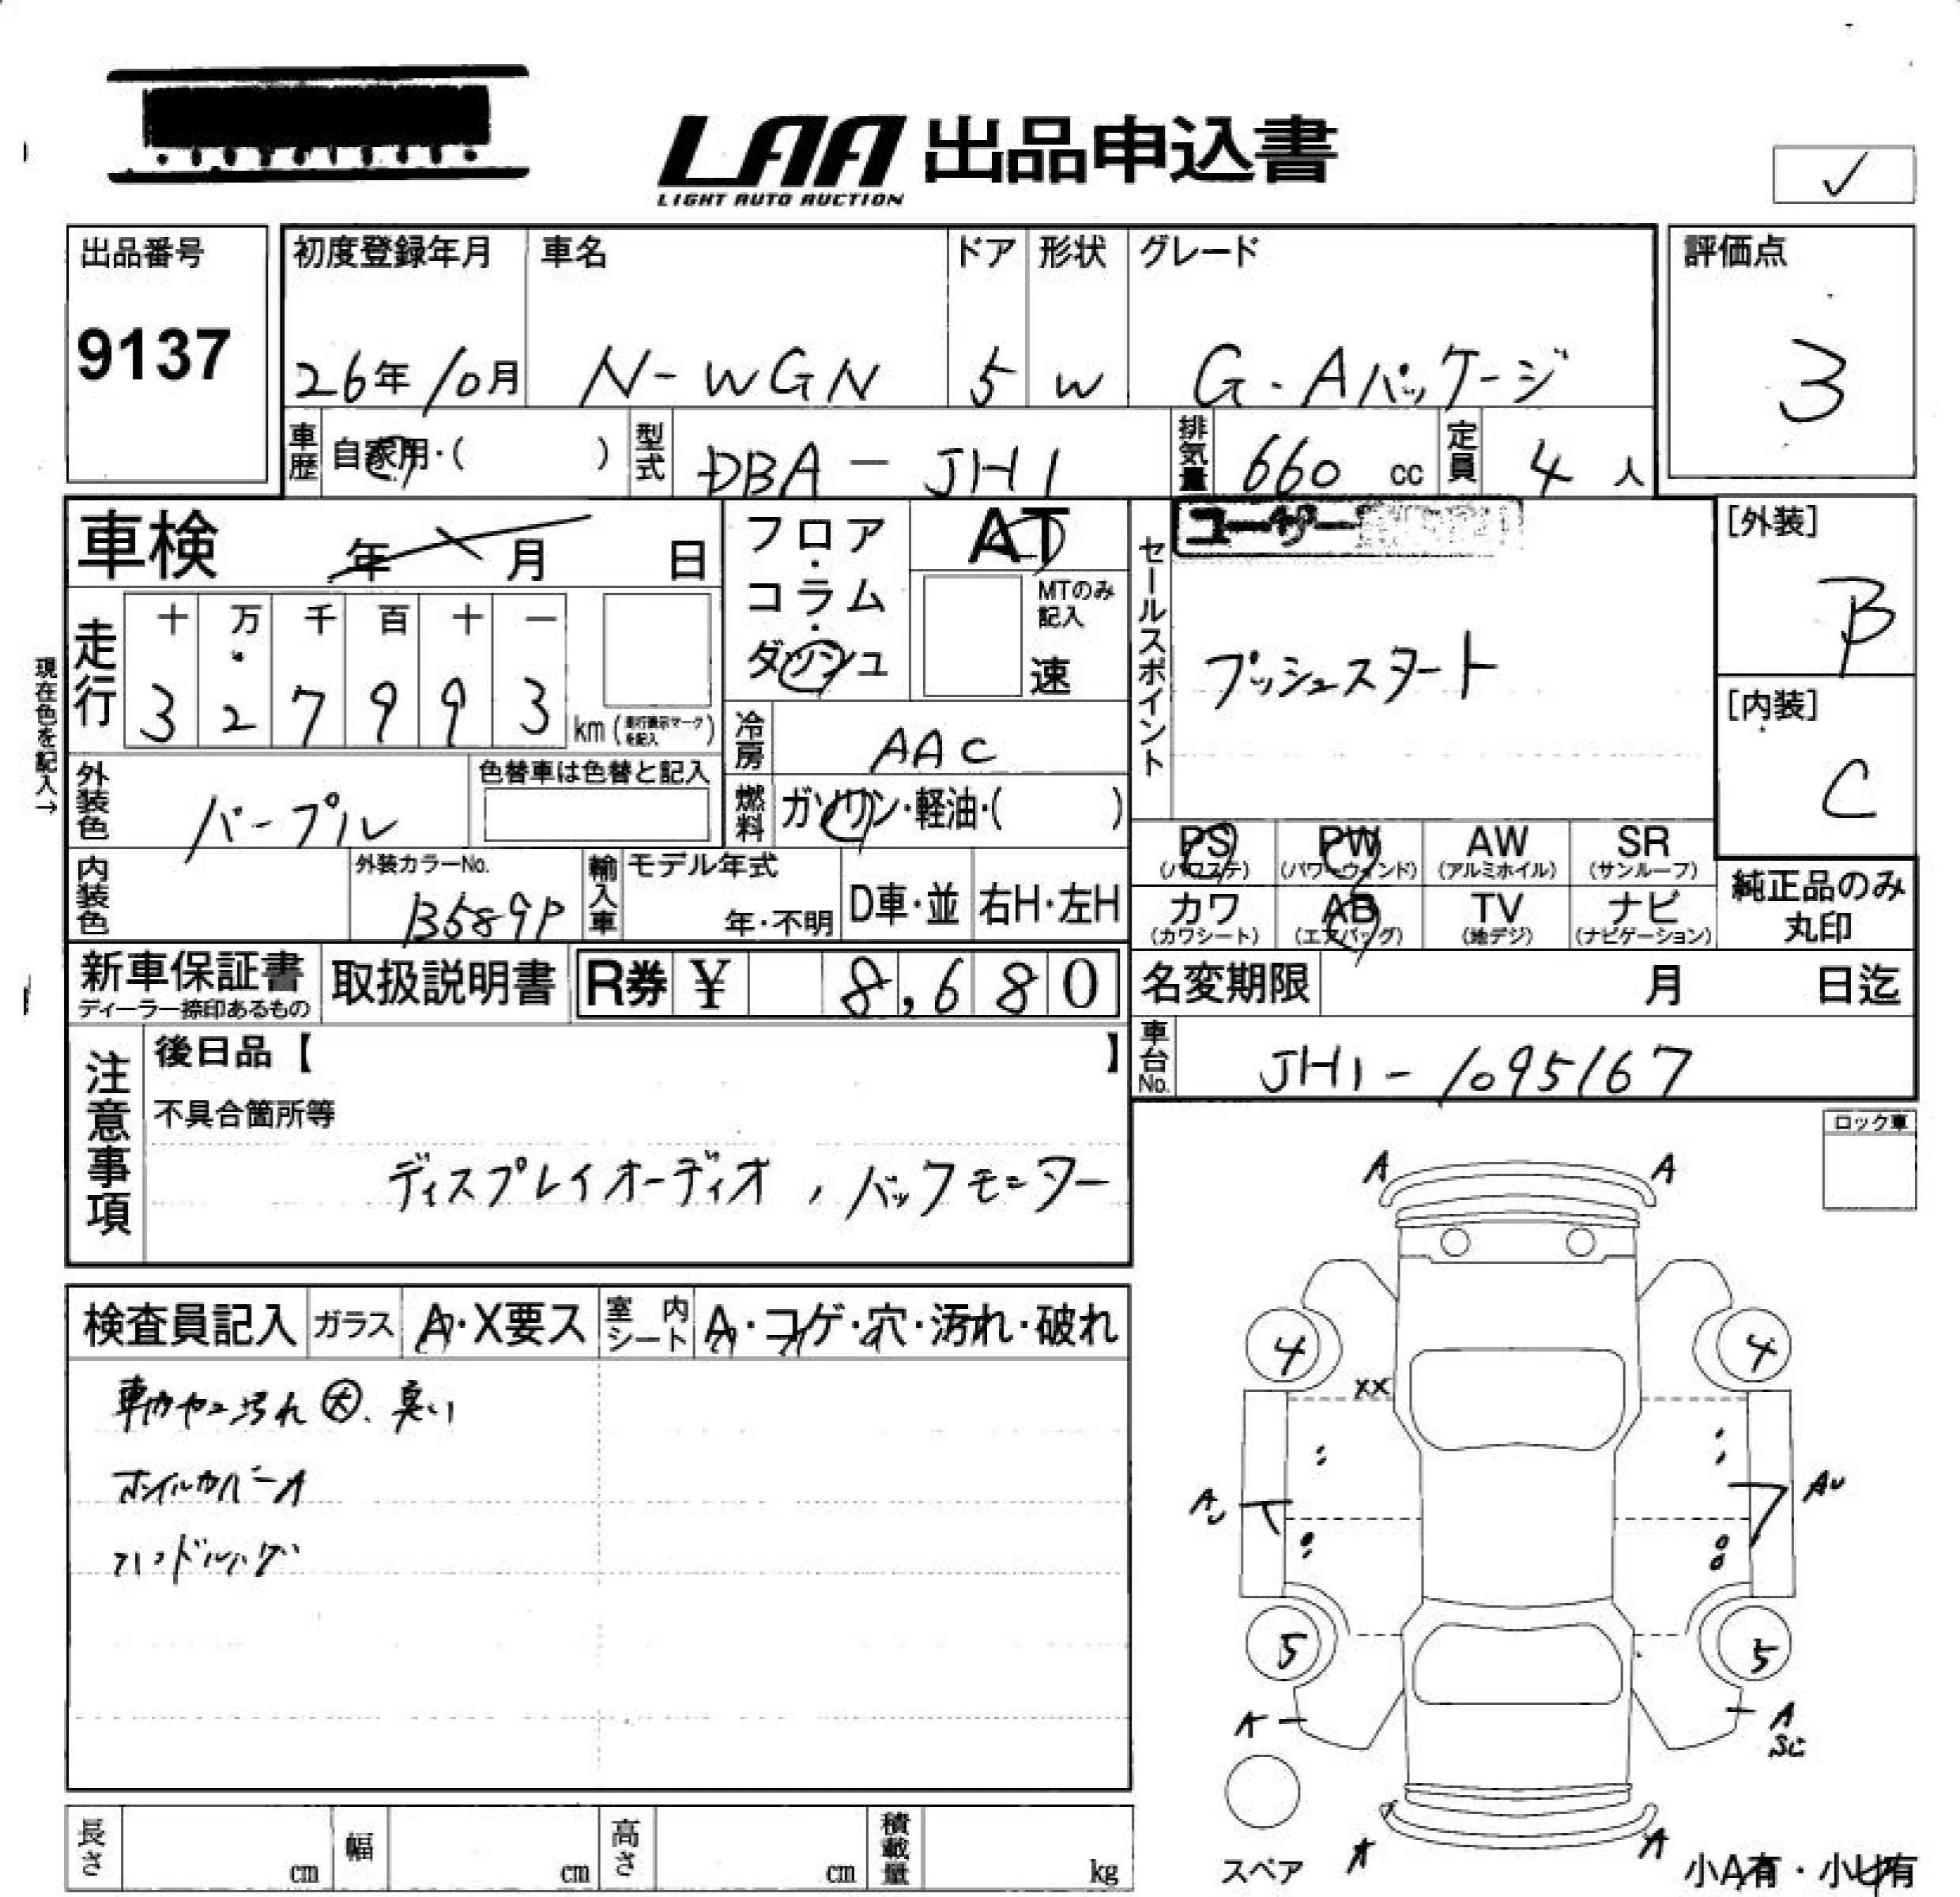 LAA 出品申込書
LIGHT AUTO AUCTION
✓
出品番号
9137
初度登録年月
26年10月
車名
N-WGN
ドア
5
形状
W
グレード
G・Aパッケージ
評価点
3
車歴 自家用・( )
型式 DBA-JH1
排気量 660 cc
定員 4 人
車検 年 月 日
フロア・コラム・ダッシュ
AT
MTのみ記入
速
セールスポイント
ユーザー
プッシュスタート
[外装]
B
[内装]
C
現在色を記入→
走行
十 万 千 百 十 一
3 2 7 9 9 3 km (走行表示マークを記入)
冷房 AAC
燃料 ガソリン・軽油・( )
外装色 パープル
色替車は色替と記入
内装色
外装カラーNo.
B589P
輸入車
モデル年式
年・不明
D車・並
右H・左H
PS (パワステ)
PW (パワーウィンド)
AW (アルミホイル)
SR (サンルーフ)
カワ (カワシート)
AB (エアバッグ)
TV (地デジ)
ナビ (ナビゲーション)
純正品のみ丸印
新車保証書
ディーラー捺印あるもの
取扱説明書
R券 ¥ 8,680
名変期限 月 日迄
車台No. JH1-1095167
注意事項
後日品【 】
不具合箇所等
ディスプレイオーディオ, バックモニター
ロック車
検査員記入 ガラス A・X要ス 室内シート A・コゲ・穴・汚れ・破れ
車内ヤニ汚れ大、臭い
ホイルカバーA
ハンドルハゲ
A A
4 4
XX
AU AU
5 5
A A
SC
A A
スペア
小A有・小U有
長さ cm 幅 cm 高さ cm 積載量 kg